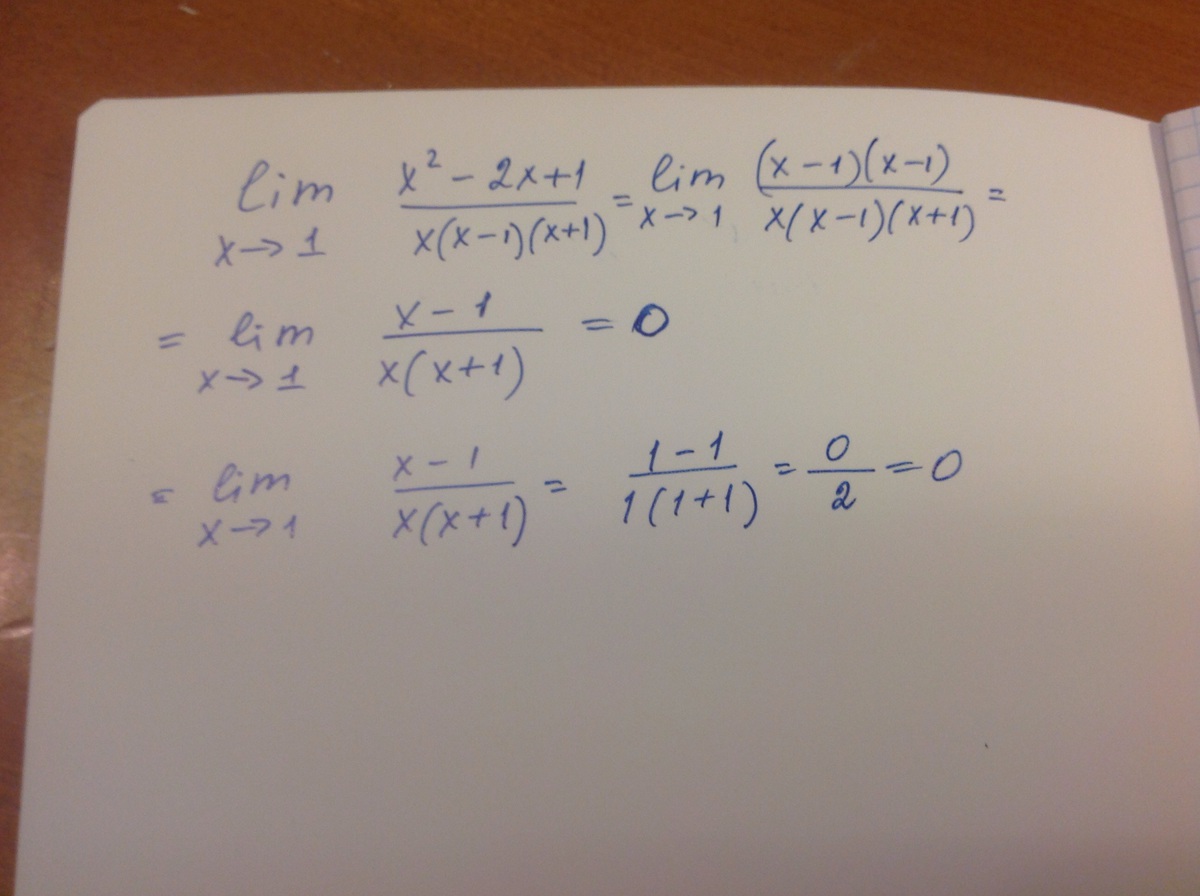 lim x→1 (x² - 2x + 1)/(x(x-1)(x+1)) = lim x→1 ((x-1)(x-1))/(x(x-1)(x+1)) =
= lim x→1 (x-1)/(x(x+1)) = 0
= lim x→1 (x-1)/(x(x+1)) = (1-1)/(1(1+1)) = 0/2 = 0